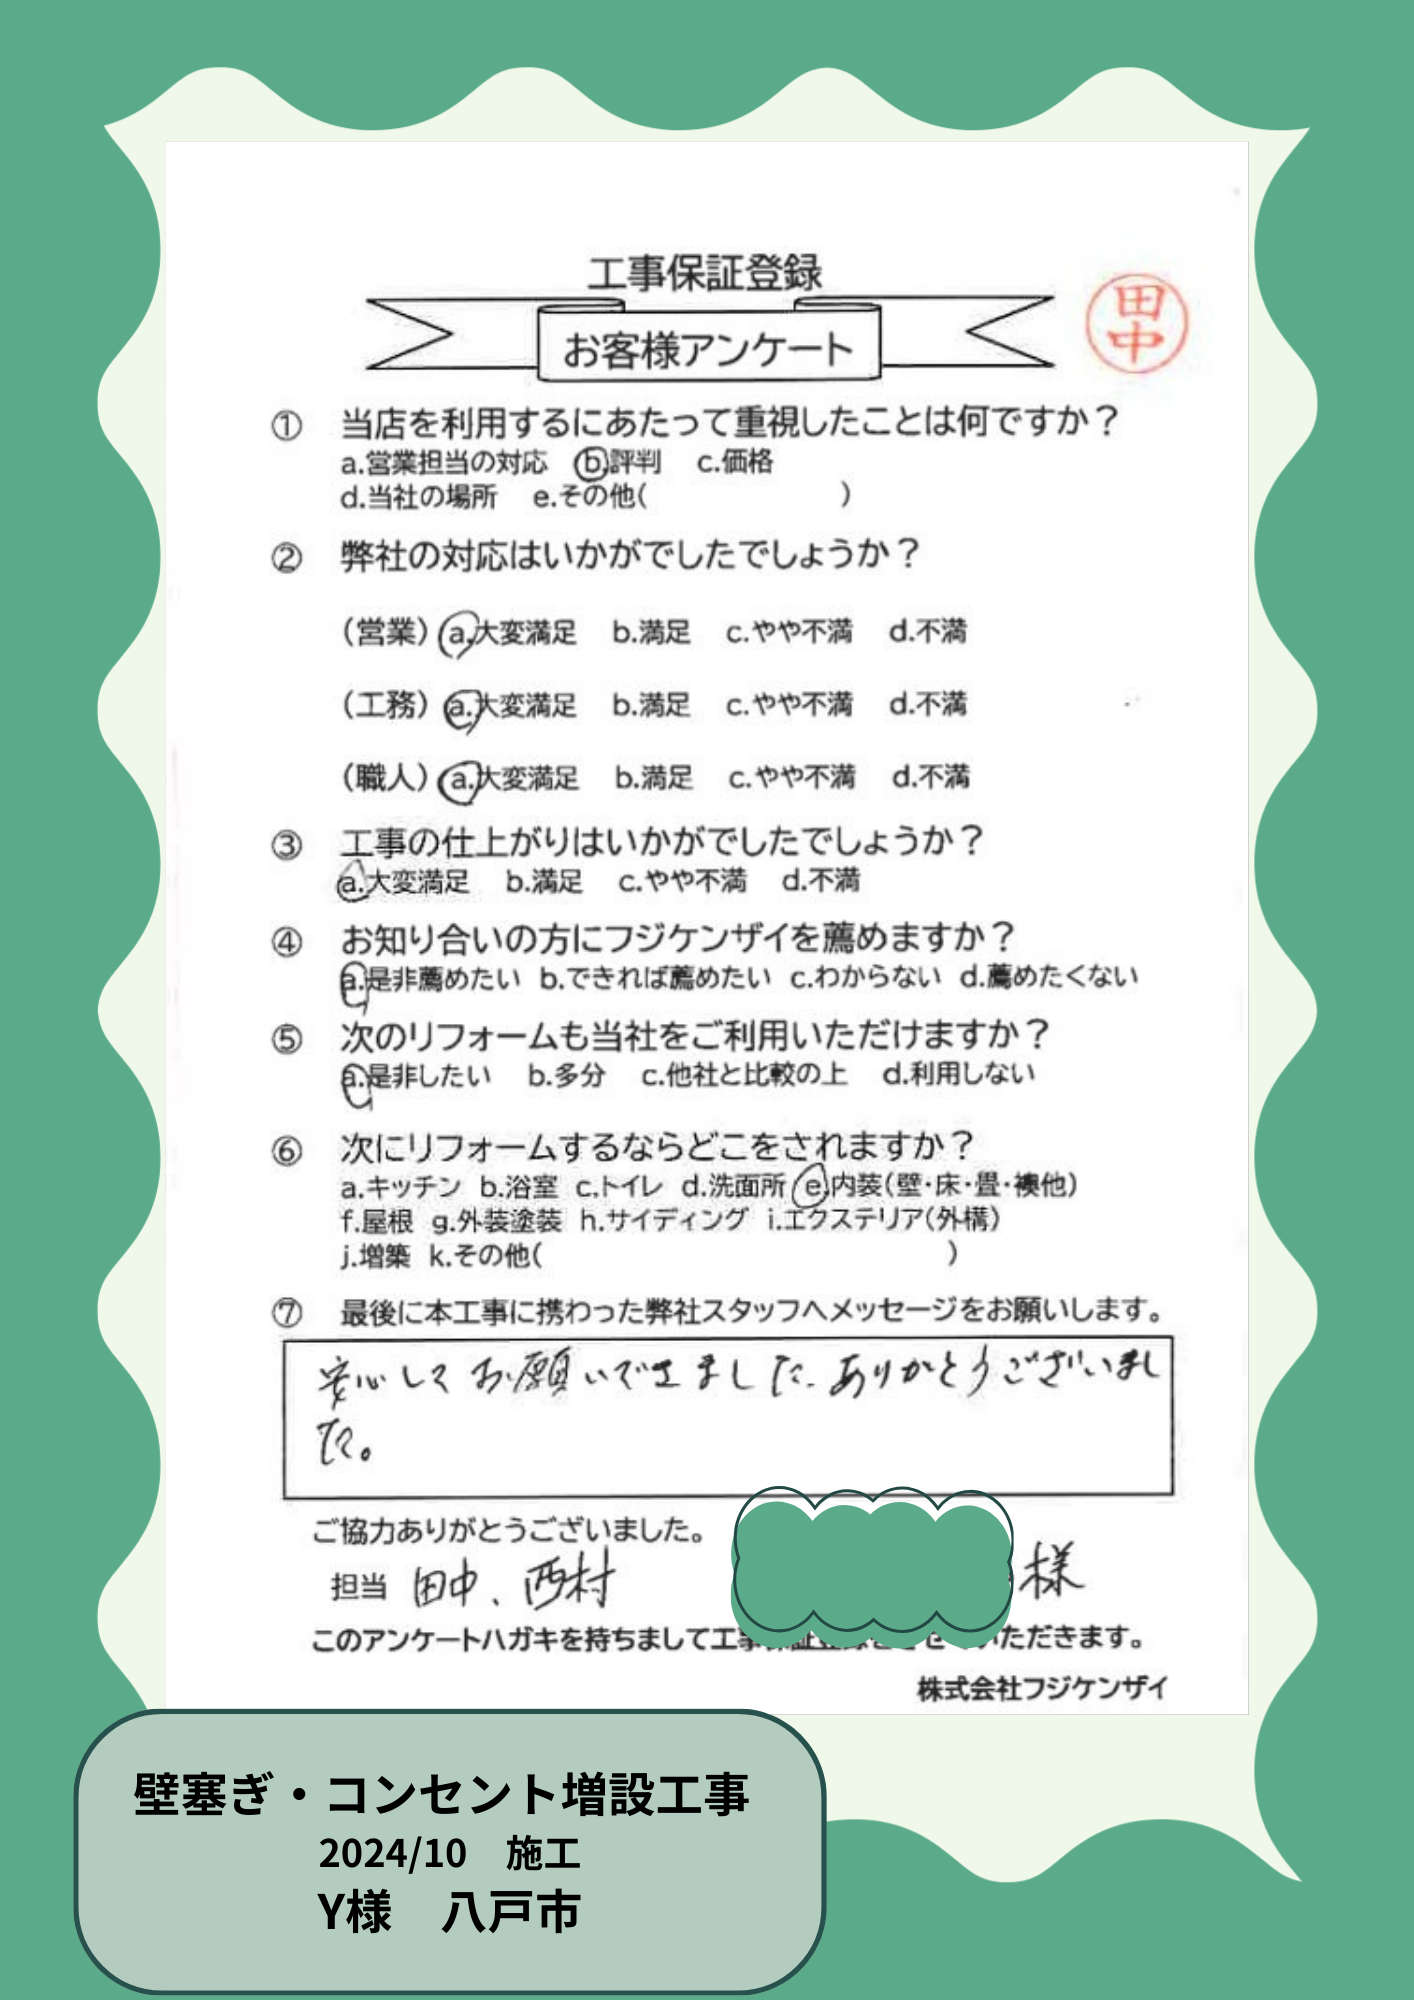 工事保証登録
お客様アンケート
田中
① 当店を利用するにあたって重視したことは何ですか？
a.営業担当の対応 b.評判 c.価格
d.当社の場所 e.その他( )
② 弊社の対応はいかがでしたでしょうか？
（営業）a.大変満足 b.満足 c.やや不満 d.不満
（工務）a.大変満足 b.満足 c.やや不満 d.不満
（職人）a.大変満足 b.満足 c.やや不満 d.不満
③ 工事の仕上がりはいかがでしたでしょうか？
a.大変満足 b.満足 c.やや不満 d.不満
④ お知り合いの方にフジケンザイを薦めますか？
a.是非薦めたい b.できれば薦めたい c.わからない d.薦めたくない
⑤ 次のリフォームも当社をご利用いただけますか？
a.是非したい b.多分 c.他社と比較の上 d.利用しない
⑥ 次にリフォームするならどこをされますか？
a.キッチン b.浴室 c.トイレ d.洗面所 e.内装(壁・床・畳・襖他)
f.屋根 g.外装塗装 h.サイディング i.エクステリア(外構)
j.増築 k.その他( )
⑦ 最後に本工事に携わった弊社スタッフへメッセージをお願いします。
安心してお願いできました。ありがとうございまし
た。
ご協力ありがとうございました。
担当 田中、西村 様
このアンケートハガキを持ちまして工事いただきます。
株式会社フジケンザイ
壁塞ぎ・コンセント増設工事
2024/10 施工
Y様 八戸市